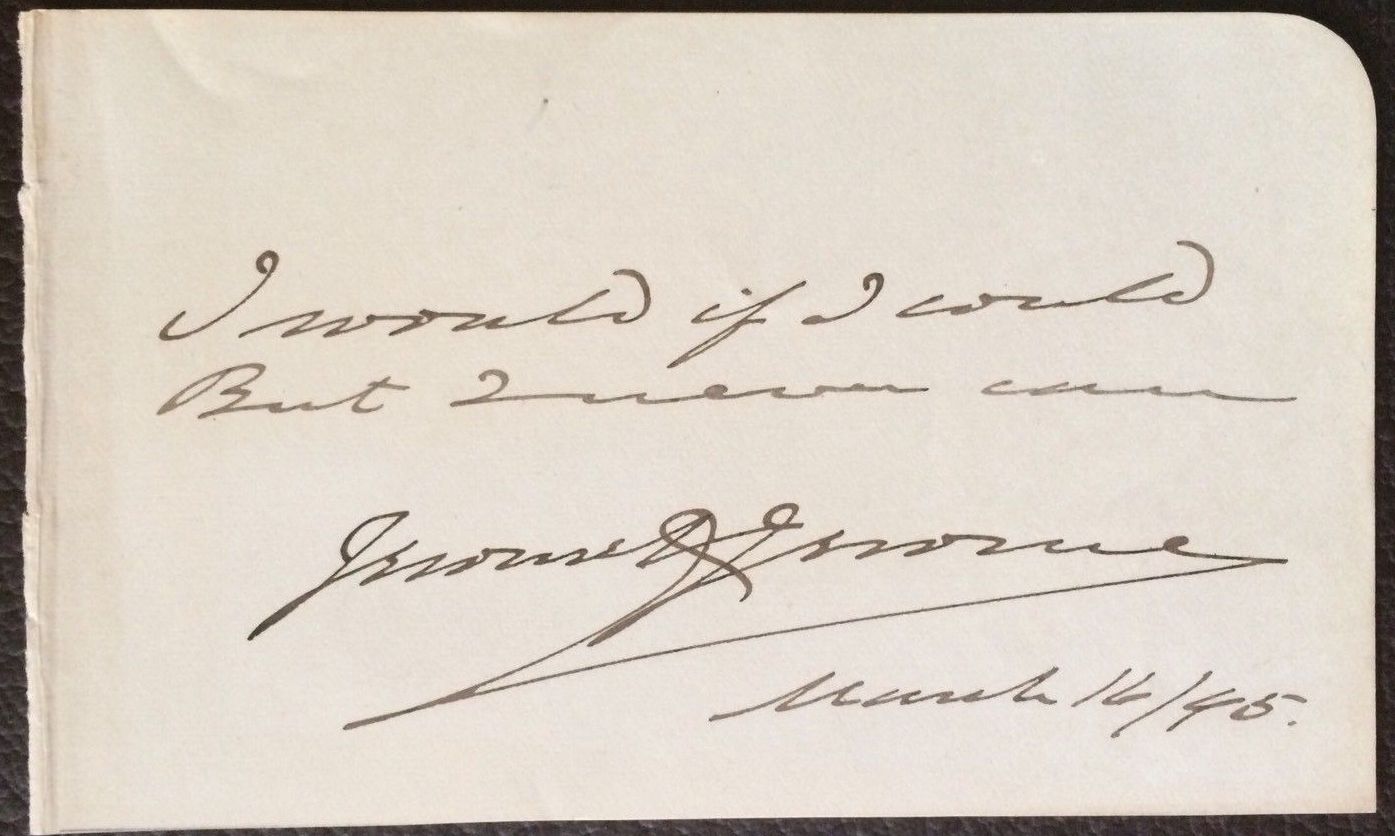 I would if I could
But I never can
Jerome K Jerome
March 16/95.